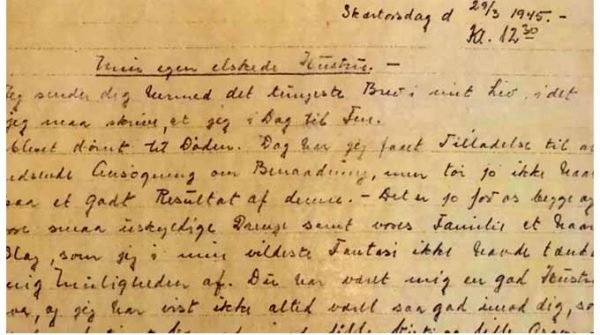 Skærtorsdag d 29/3 1945. –
Kl. 12 30
Min egen elskede Hustru. –
Jeg sender dig hermed det tungeste Brev i mit Liv, idet
jeg maa skrive, at jeg i Dag til Fem.
blevet dømt til Døden. Dog har jeg faaet Tilladelse til at
indsende Ansøgning om Benaadning, men tør jo ikke haabe
paa et godt Resultat af denne. – Det er jo for os begge og
vore smaa uskyldige Drenge samt vores Familie et haardt
Slag, som jeg i min vildeste Fantasi ikke havde tænkt
mig Muligheden af. Du har været mig en god Hustru
og jeg har vist ikke altid været saa god imod dig, so